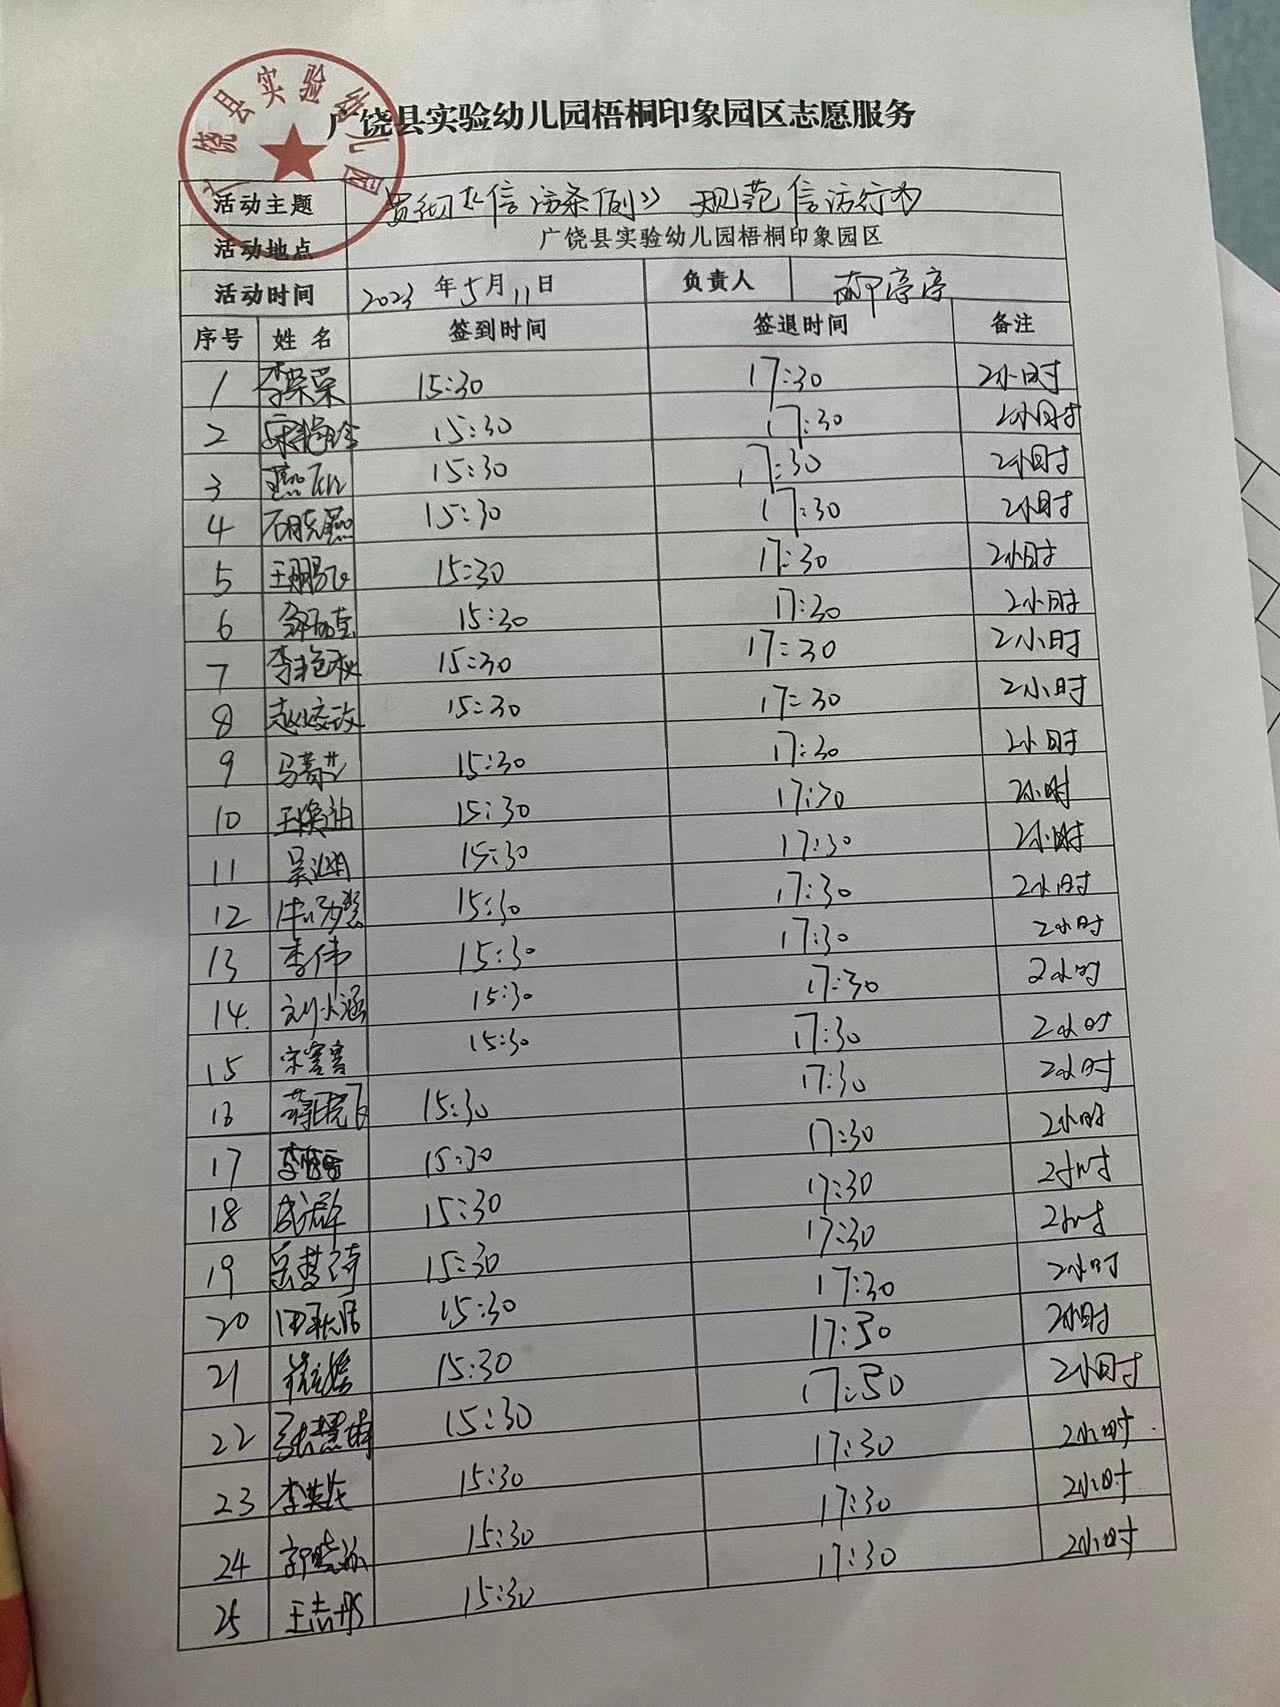 广饶县实验幼儿园
广饶县实验幼儿园梧桐印象园区志愿服务
活动主题 贯彻《信访条例》 规范信访行为
活动地点 广饶县实验幼儿园梧桐印象园区
活动时间 2023年5月11日 负责人 郝停停
序号 姓名 签到时间 签退时间 备注
1 李荣荣 15:30 17:30 2小时
2 15:30 17:30 2小时
3 15:30 17:30 2小时
4 石晓燕 15:30 17:30 2小时
5 王鹏飞 15:30 17:30 2小时
6 15:30 17:30 2小时
7 李艳秋 15:30 17:30 2小时
8 赵姣政 15:30 17:30 2小时
9 15:30 17:30 2小时
10 15:30 17:30 2小时
11 15:30 17:30 2小时
12 15:30 17:30 2小时
13 李伟 15:30 17:30 2小时
14. 15:30 17:30 2小时
15 15:30 17:30 2小时
16 15:30 17:30 2小时
17 15:30 17:30 2小时
18 成群 15:30 17:30 2小时
19 岳梦琦 15:30 17:30 2小时
20 15:30 17:30 2小时
21 15:30 17:30 2小时
22 15:30 17:30 2小时
23 15:30 17:30 2小时
24 15:30 17:30 2小时
25 王志彤 15:30 17:30 2小时